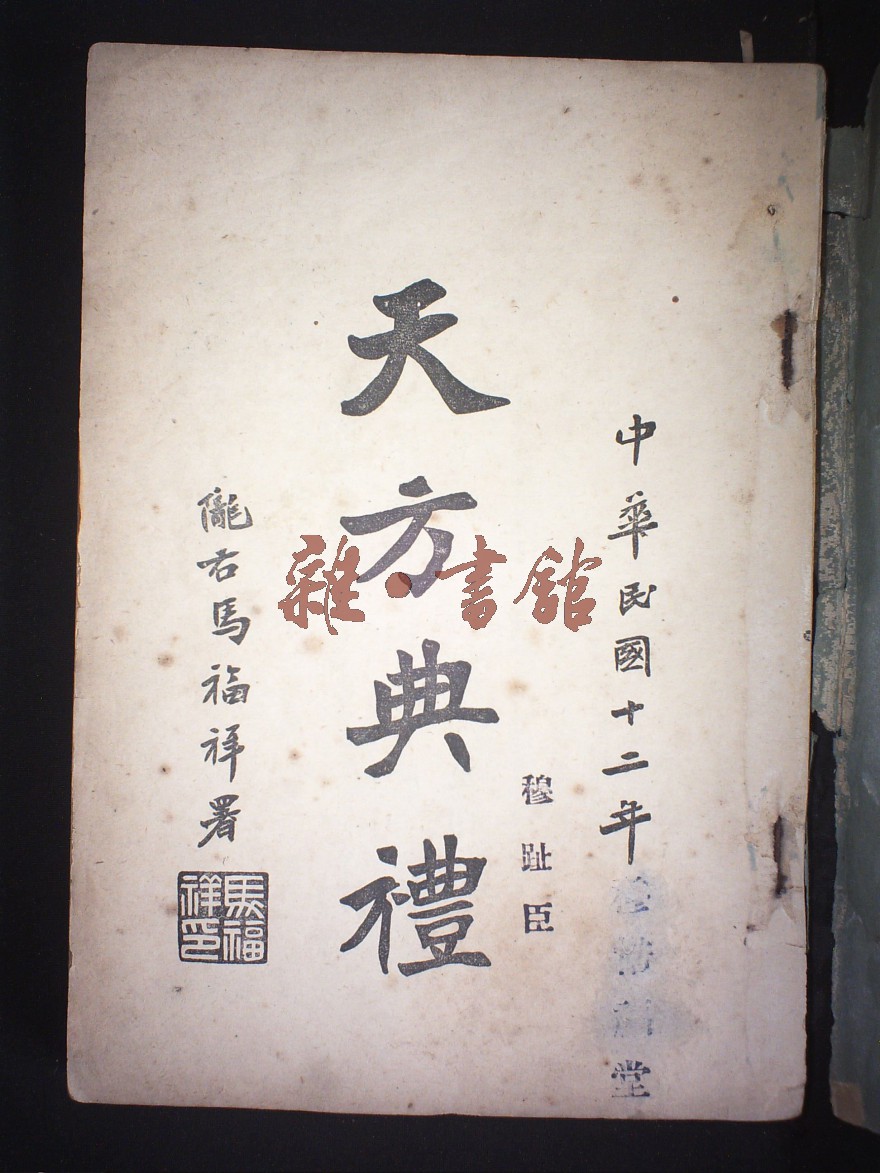 中華民國十二年
堂
穆趾臣
天方典禮
隴右馬福祥署
馬福祥印
雜·書館